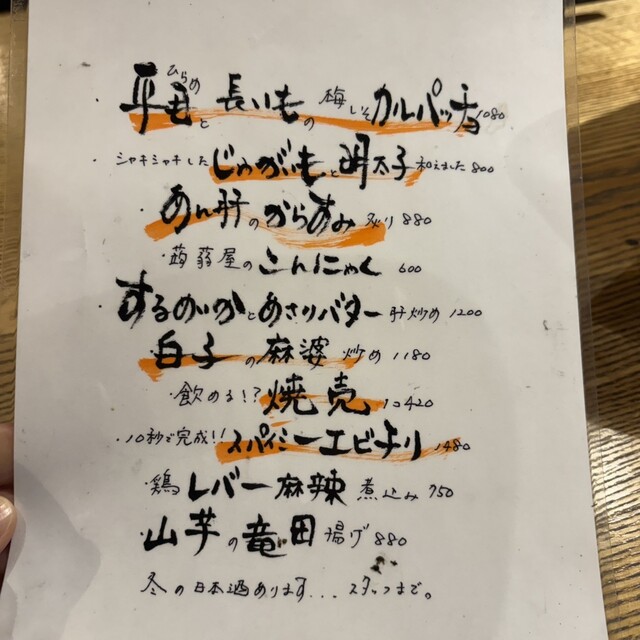 平目と長いもの梅しそカルパッチョ 1080
ひらめ
・シャキシャキしたじゃがいもと明太子和えました 800
・あん肝のからすみ 880
・蒟蒻屋のこんにゃく 600
するめいかとあさりバター肝炒め 1200
白子の麻婆炒め 1180
・飲める!?焼売 1コ420
・10秒で完成!!スパイシーエビチリ 1480
・鶏レバー麻辣煮込み 750
・山芋の竜田揚げ 880
冬の日本酒あります...スタッフまで。